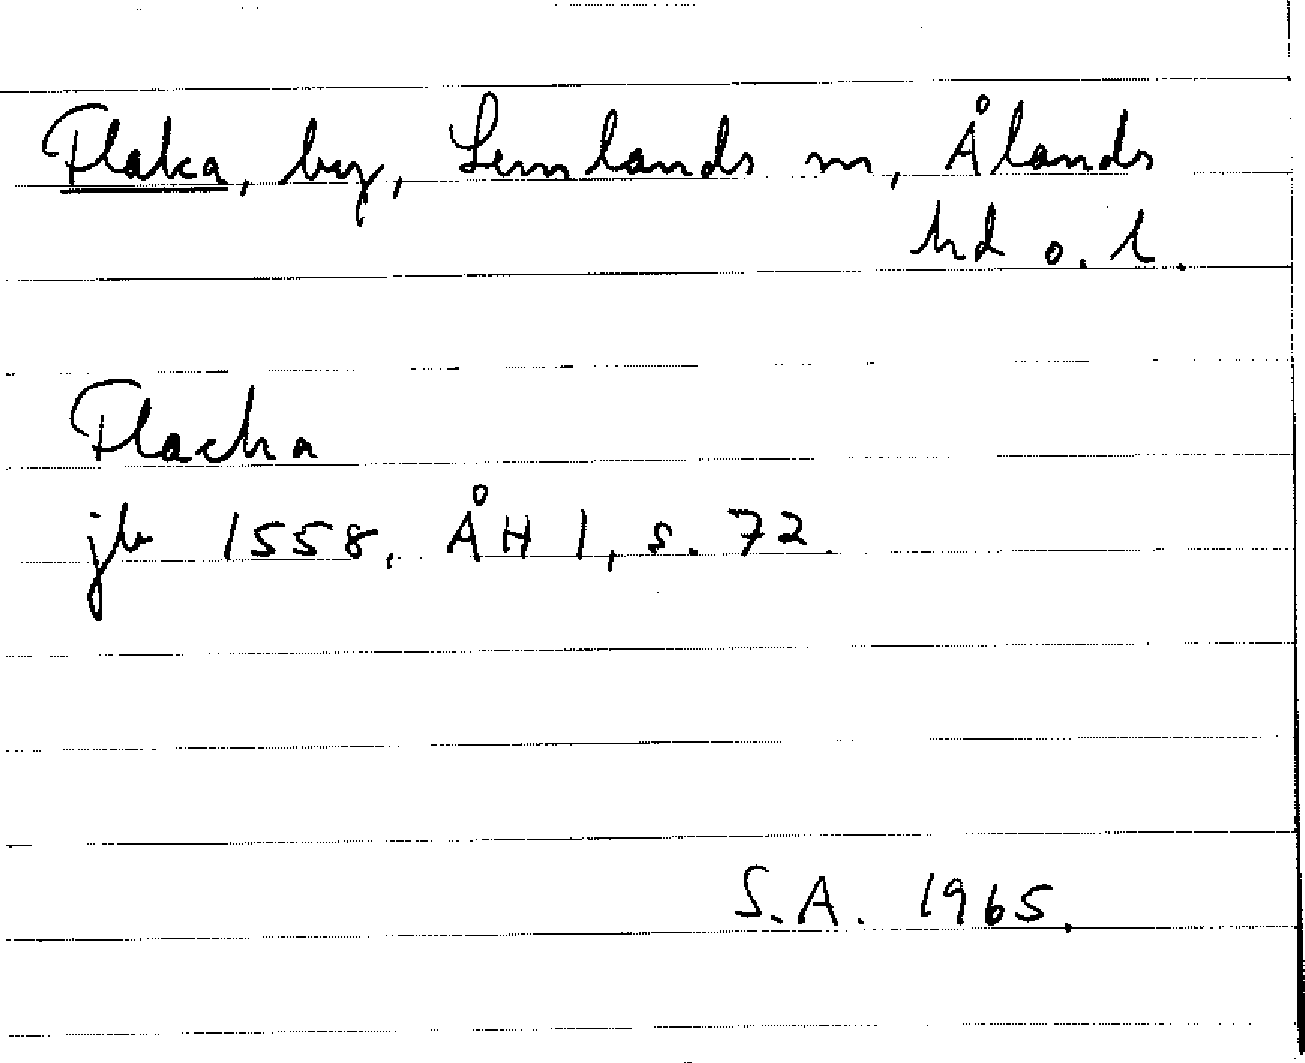 Flaka, by, Lemlands sn, Ålands
hd o. l.
Flacka
jb 1558, ÅH 1, s. 72.
S.A. 1965.